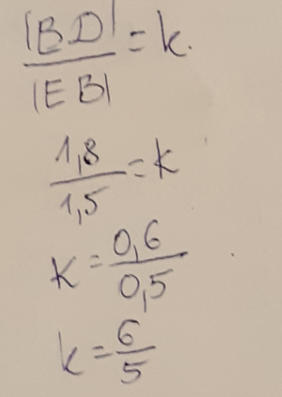 |BD|/|EB| = k.
1,8/1,5 = k
k = 0,6/0,5
k = 6/5